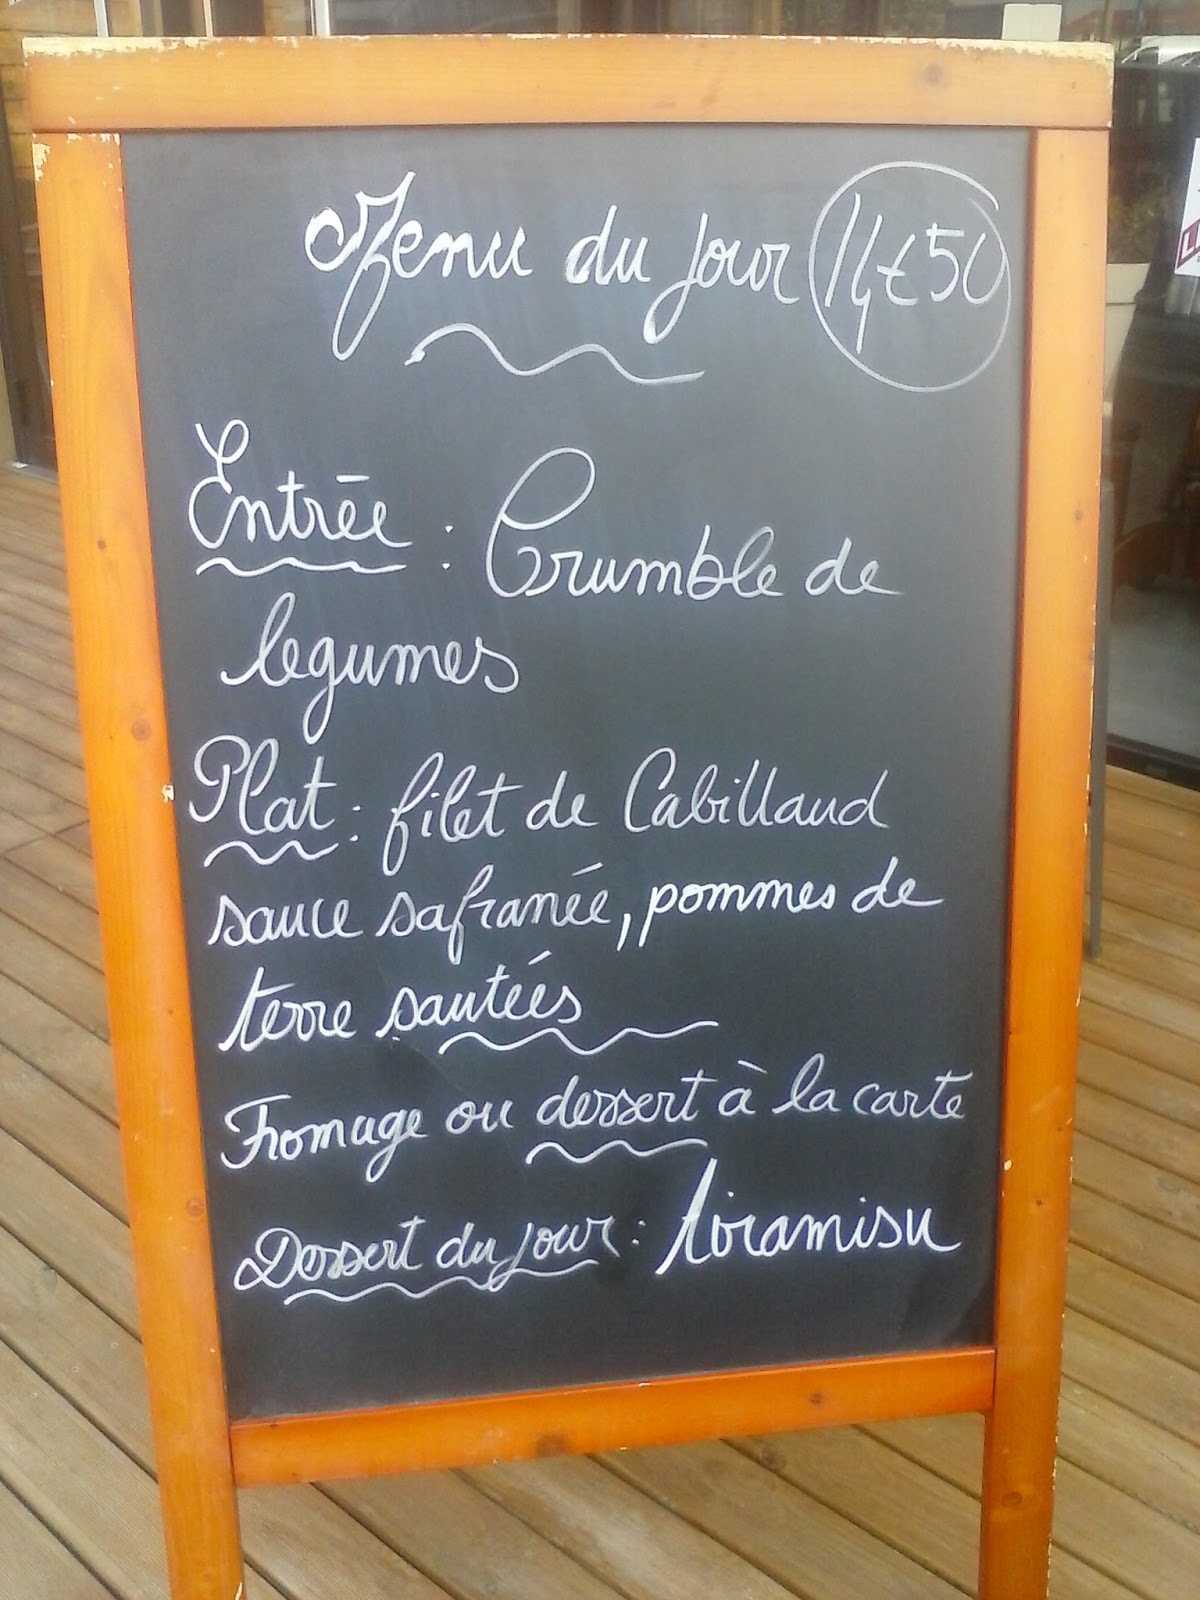 Menu du jour 14€50
Entrée : Crumble de
legumes
Plat : filet de Cabillaud
sauce safranée, pommes de
terre sautées
Fromage ou dessert à la carte
Dessert du jour : tiramisu